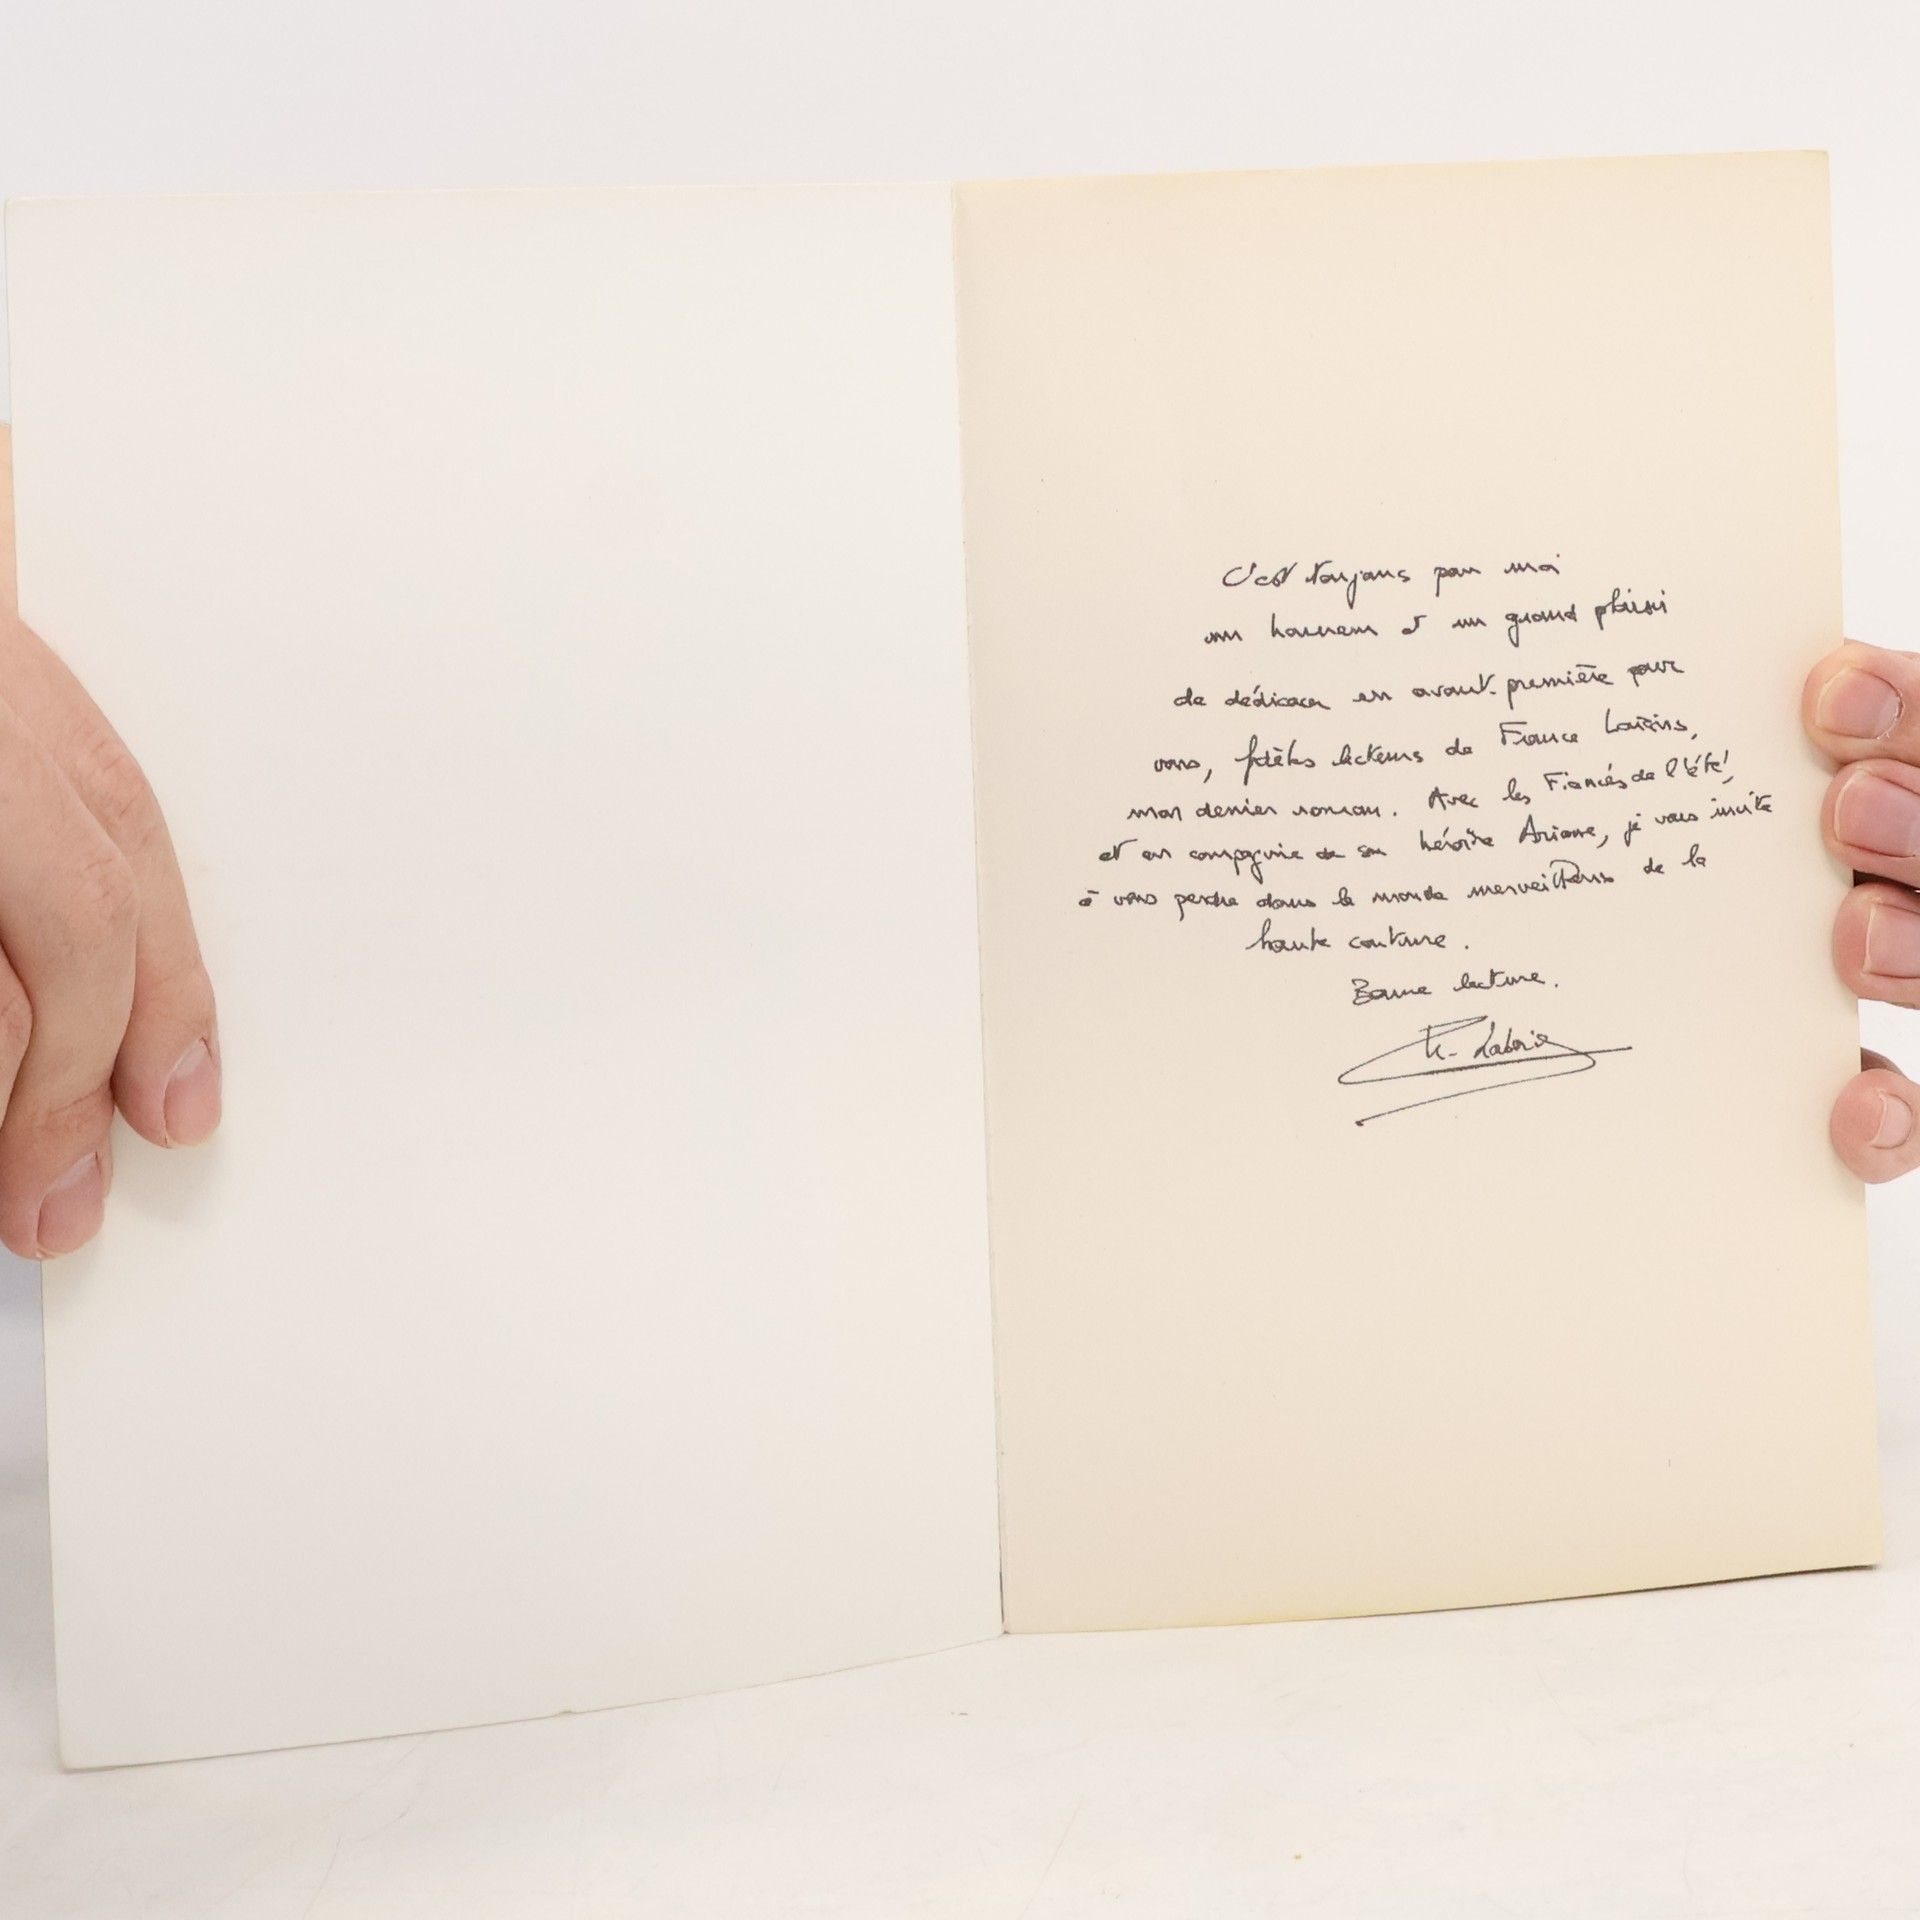 C'est toujours pour moi
un honneur et un grand plaisir
de dédicacer en avant-première pour
vous, fidèles lecteurs de France Loisirs,
mon dernier roman. Avec les Fiancés de l'été,
et en compagnie de son héroïne Ariane, je vous invite
à vous perdre dans le monde merveilleux de la
haute couture.
Bonne lecture.
Laborie